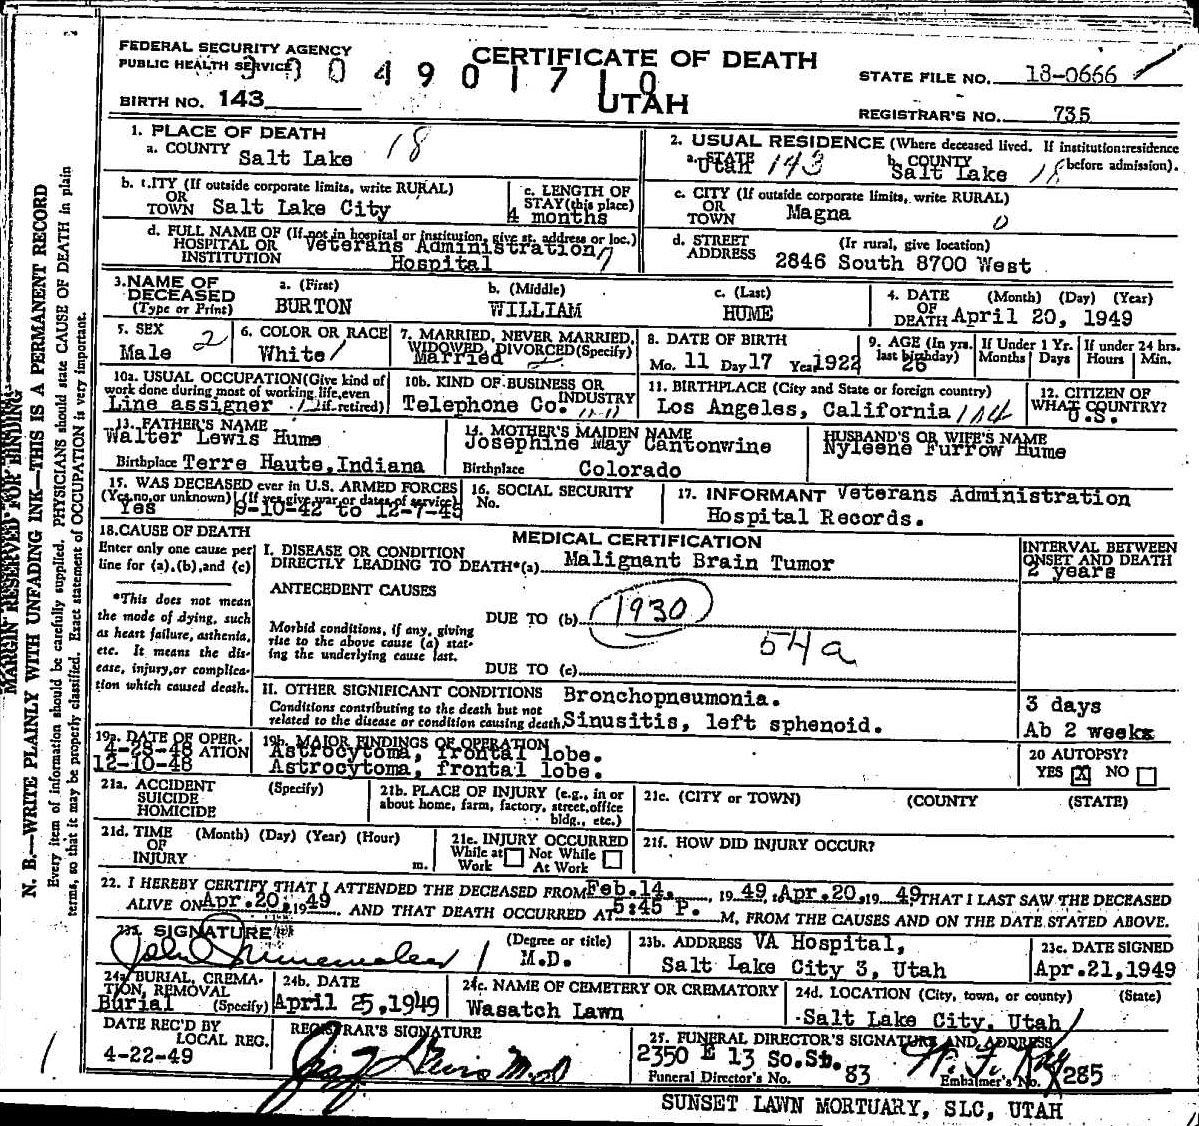 FEDERAL SECURITY AGENCY
PUBLIC HEALTH SERVICE
CERTIFICATE OF DEATH
UTAH
4 9 0 1 7 1 0
STATE FILE NO. 18-0666
BIRTH NO. 143
REGISTRAR'S NO. 735
1. PLACE OF DEATH
a. COUNTY Salt Lake 18
2. USUAL RESIDENCE (Where deceased lived. If institution:residence before admission).
a. STATE Utah 143 b. COUNTY Salt Lake 18
b. CITY (If outside corporate limits, write RURAL) OR TOWN Salt Lake City
c. LENGTH OF STAY(this place) 4 months
c. CITY (If outside corporate limits, write RURAL) OR TOWN Magna 0
d. FULL NAME OF (If not in hospital or institution, give st. address or loc.) HOSPITAL OR INSTITUTION Veterans Administration Hospital
d. STREET ADDRESS (If rural, give location) 2846 South 8700 West
3. NAME OF DECEASED (Type or Print)
a. (First) BURTON
b. (Middle) WILLIAM
c. (Last) HUME
4. DATE OF DEATH (Month) (Day) (Year) April 20, 1949
5. SEX Male 2
6. COLOR OR RACE White
7. MARRIED, NEVER MARRIED, WIDOWED, DIVORCED (Specify) Married
8. DATE OF BIRTH Mo. 11 Day 17 Year 1922
9. AGE (In yrs. last birthday) 26
If Under 1 Yr. Months Days
If under 24 hrs. Hours Min.
10a. USUAL OCCUPATION(Give kind of work done during most of working life, even if retired) Line assigner
10b. KIND OF BUSINESS OR INDUSTRY Telephone Co.
11. BIRTHPLACE (City and State or foreign country) Los Angeles, California
12. CITIZEN OF WHAT COUNTRY? U.S.
13. FATHER'S NAME Walter Lewis Hume
Birthplace Terre Haute, Indiana
14. MOTHER'S MAIDEN NAME Josephine May Cantonwine
Birthplace Colorado
HUSBAND'S OR WIFE'S NAME Nyleene Furrow Hume
15. WAS DECEASED ever in U.S. ARMED FORCES (Yes, no, or unknown) (If yes, give war or dates of service) Yes 9-10-42 to 12-7-45
16. SOCIAL SECURITY No.
17. INFORMANT Veterans Administration Hospital Records.
18. CAUSE OF DEATH
Enter only one cause per line for (a), (b), and (c)
*This does not mean the mode of dying, such as heart failure, asthenia, etc. It means the disease, injury, or complication which caused death.
MEDICAL CERTIFICATION
I. DISEASE OR CONDITION DIRECTLY LEADING TO DEATH*(a) Malignant Brain Tumor
INTERVAL BETWEEN ONSET AND DEATH 2 years
ANTECEDENT CAUSES
Morbid conditions, if any, giving rise to the above cause (a) stating the underlying cause last.
DUE TO (b) 1930
54a
DUE TO (c)
II. OTHER SIGNIFICANT CONDITIONS
Conditions contributing to the death but not related to the disease or condition causing death.
Bronchopneumonia. 3 days
Sinusitis, left sphenoid. Ab 2 weeks
19a. DATE OF OPERATION 4-28-48
12-10-48
19b. MAJOR FINDINGS OF OPERATION
Astrocytoma, frontal lobe.
Astrocytoma, frontal lobe.
20 AUTOPSY? YES X NO
21a. ACCIDENT SUICIDE HOMICIDE (Specify)
21b. PLACE OF INJURY (e.g., in or about home, farm, factory, street, office bldg., etc.)
21c. (CITY or TOWN) (COUNTY) (STATE)
21d. TIME OF INJURY (Month) (Day) (Year) (Hour) m.
21e. INJURY OCCURRED While at Work Not While At Work
21f. HOW DID INJURY OCCUR?
22. I HEREBY CERTIFY THAT I ATTENDED THE DECEASED FROM Feb. 14, 1949, to Apr. 20, 1949 THAT I LAST SAW THE DECEASED
ALIVE ON Apr. 20, 1949 AND THAT DEATH OCCURRED AT 5:45 P. M, FROM THE CAUSES AND ON THE DATE STATED ABOVE.
23a. SIGNATURE (Degree or title) M.D.
23b. ADDRESS VA Hospital, Salt Lake City 3, Utah
23c. DATE SIGNED Apr.21,1949
24a. BURIAL, CREMATION, REMOVAL (Specify) Burial
24b. DATE April 25, 1949
24c. NAME OF CEMETERY OR CREMATORY Wasatch Lawn
24d. LOCATION (City, town, or county) (State) Salt Lake City, Utah
DATE REC'D BY LOCAL REG. 4-22-49
REGISTRAR'S SIGNATURE M.D
25. FUNERAL DIRECTOR'S SIGNATURE AND ADDRESS
2350 E 13 So.St.
Funeral Director's No. 83 Embalmer's No. 285
SUNSET LAWN MORTUARY, SLC, UTAH
MARGIN RESERVED FOR BINDING
N. B.—WRITE PLAINLY WITH UNFADING INK—THIS IS A PERMANENT RECORD
Every item of information should be carefully supplied. PHYSICIANS should state CAUSE OF DEATH in plain
terms, so that it may be properly classified. Exact statement of OCCUPATION is very important.